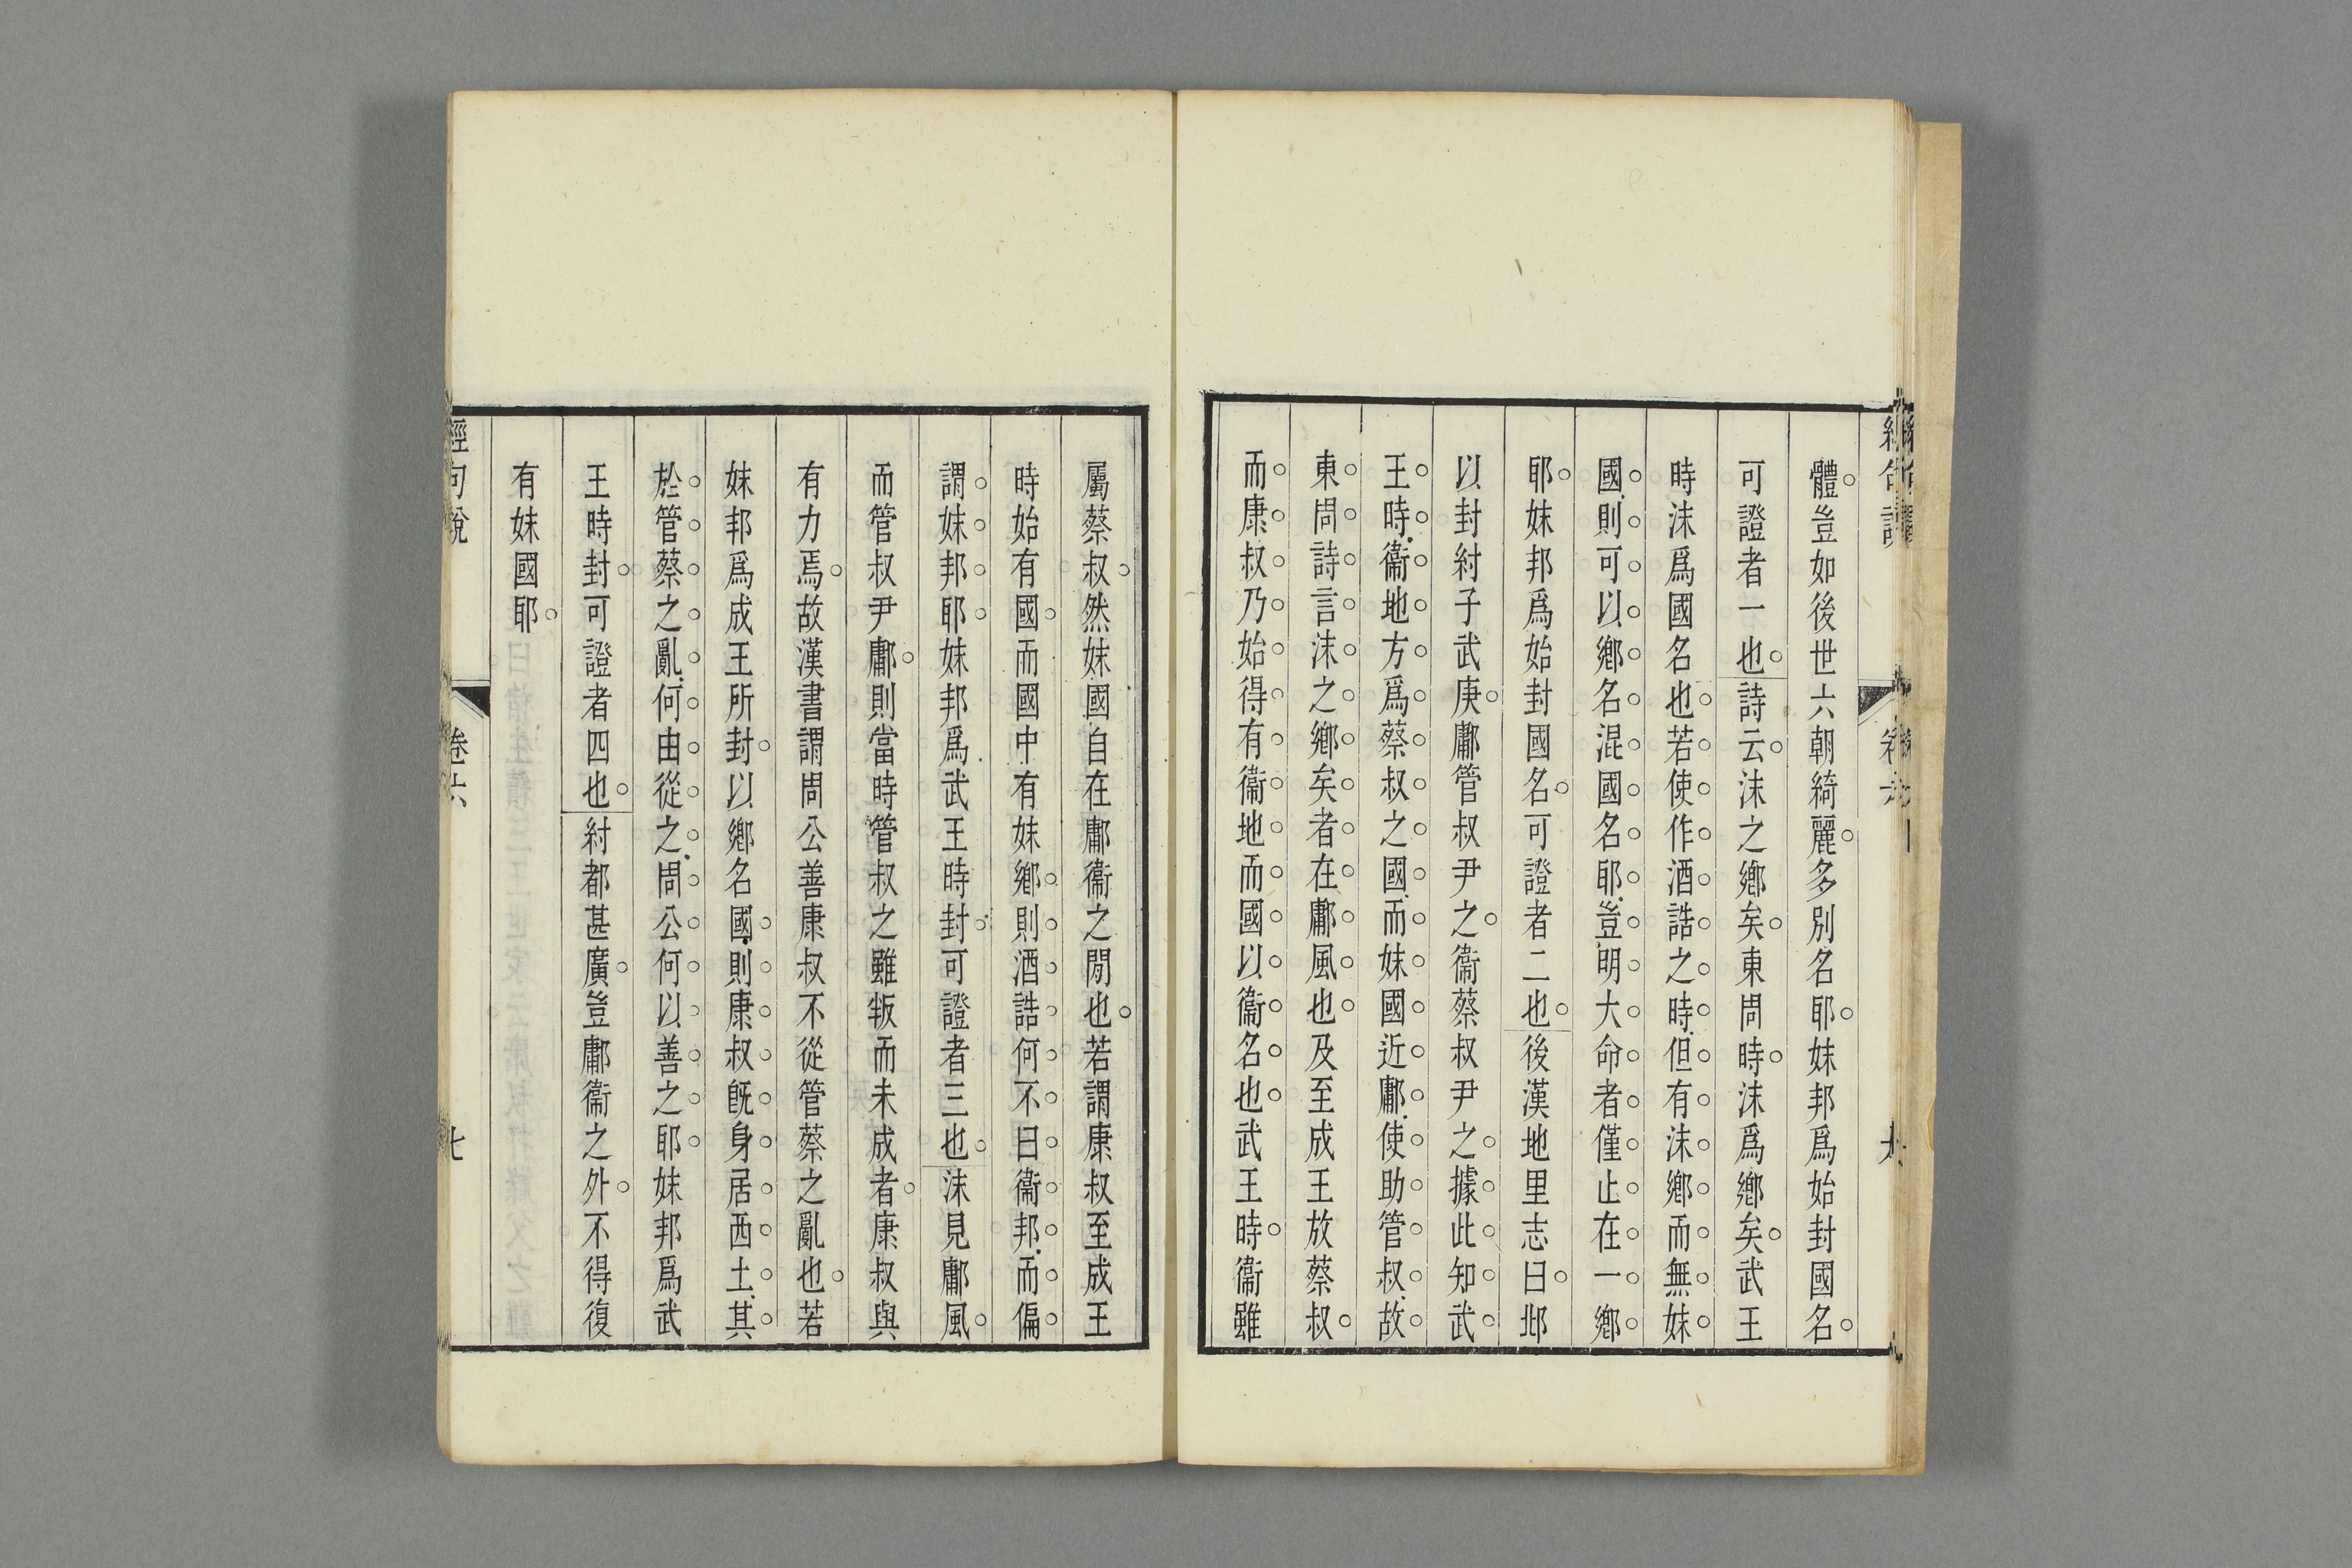 體豈如後世六朝綺麗多別名耶妹邦爲始封國名
可證者一也詩云沬之鄉矣東問時沬爲鄉矣武王
時沬爲國名也若使作酒誥之時但有沬鄉而無妹
國則可以鄉名混國名耶豈明大命者僅止在一鄉
耶妹邦爲始封國名可證者二也後漢地里志曰邶
以封紂子武庚鄘管叔尹之衞蔡叔尹之據此知武
王時衞地方爲蔡叔之國而妹國近鄘使助管叔故
東問詩言沬之鄉矣者在鄘風也及至成王放蔡叔
而康叔乃始得有衞地而國以衞名也武王時衞雖
屬蔡叔然妹國自在鄘衞之閒也若謂康叔至成王
時始有國而國中有妹鄉則酒誥何不曰衞邦而偏
謂妹邦耶妹邦爲武王時封可證者三也沬見鄘風
而管叔尹鄘則當時管叔之雖叛而未成者康叔與
有力焉故漢書謂周公善康叔不從管蔡之亂也若
妹邦爲成王所封以鄉名國則康叔旣身居西土其
於管蔡之亂何由從之周公何以善之耶妹邦爲武
王時封可證者四也紂都甚廣豈鄘衞之外不得復
有妹國耶
經句說 卷六 七